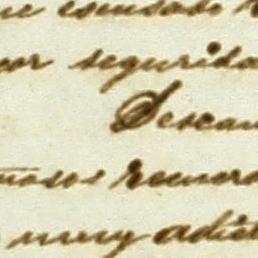 ue escusado
or segurida
Desean
mosos recuerd
muy adict